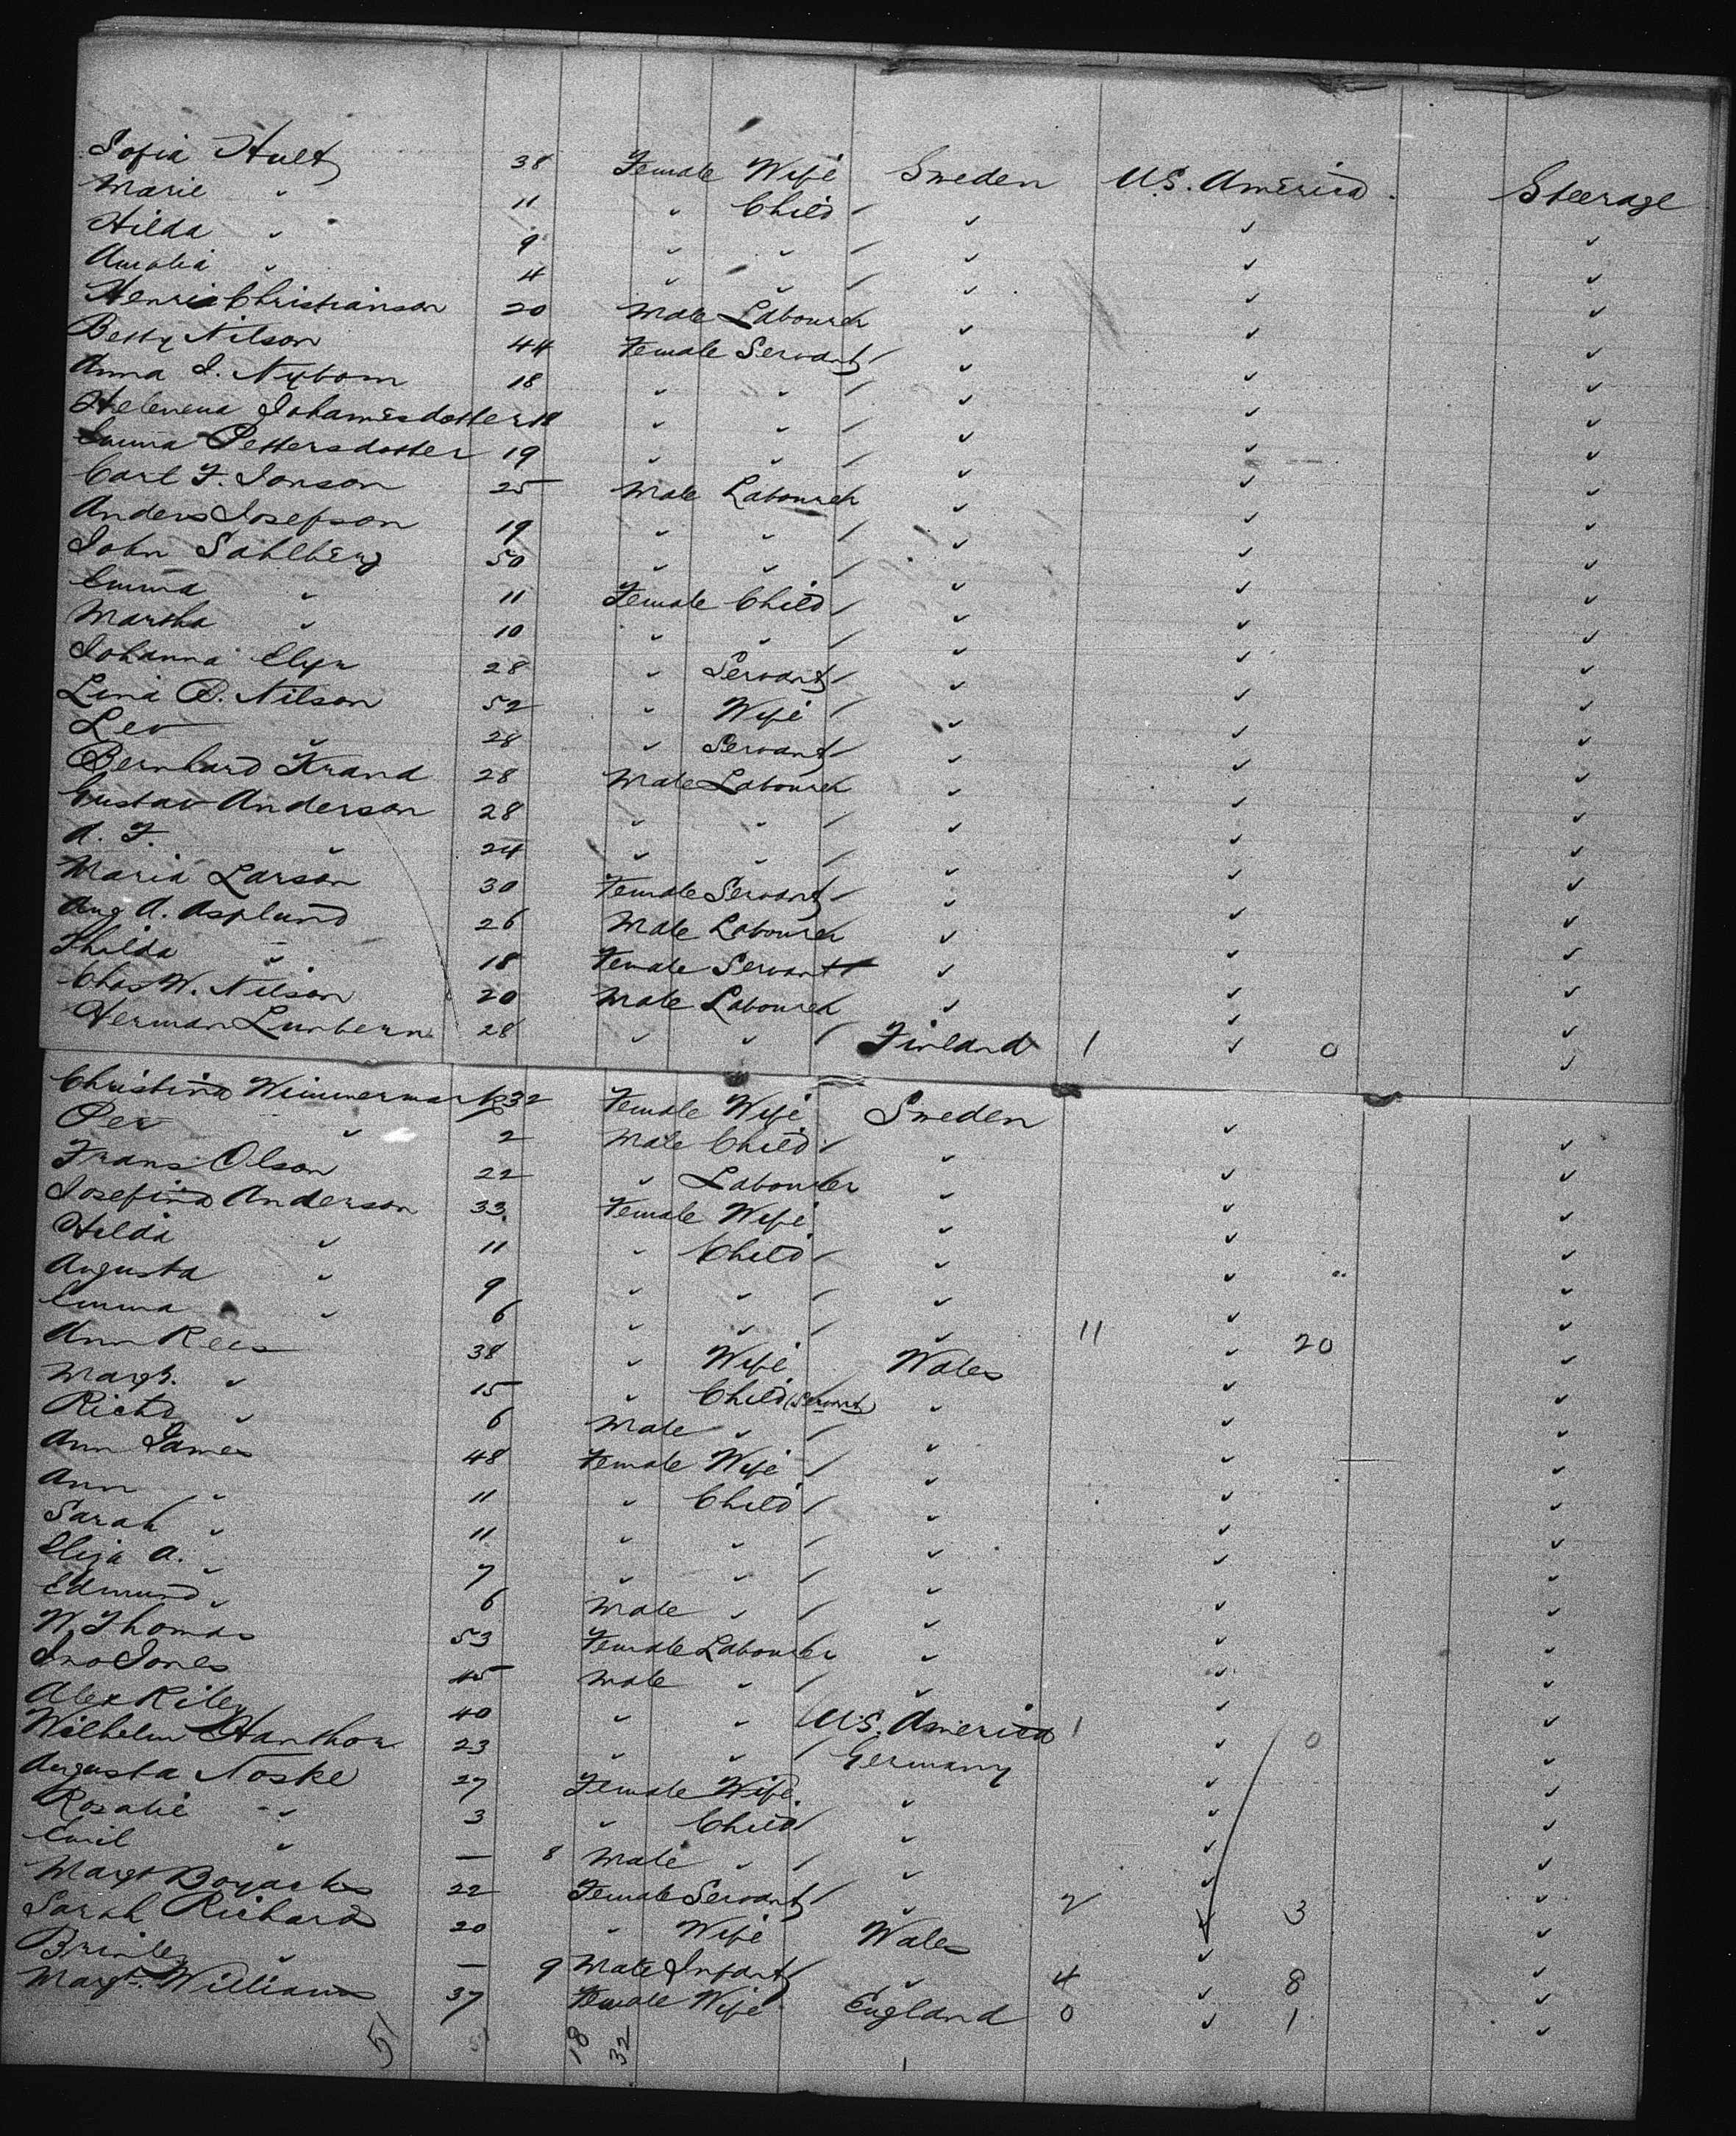 Sofia Hult 38 Female Wife Sweden U.S. America Steerage
Marie " 11 " Child / " " "
Hilda " 9 " " / " " "
Amalia " 4 " " / " " "
Henric Christianson 20 Male Labourer " " "
Betty Nilson 44 Female Servant / " " "
Anna S. Nybom 18 " " / " " "
Helenena Johannesdotter 18 " " / " " "
Emma Pettersdotter 19 " " / " " "
Carl F. Jonson 25 Male Labourer " " "
Anders Josefson 19 " " / " " "
John Sahlberg 50 " " / " " "
Emma " 11 Female Child / " " "
Martha " 10 " " / " " "
Johanna 28 " Servant / " " "
Lina B. Nilson 52 " Wife / " " "
Lev " 28 " Servant / " " "
Bernhard Krand 28 Male Labourer " " "
Gustav Anderson 28 " " / " " "
A. F. " 24 " " / " " "
Maria Larson 30 Female Servant / " " "
Aug A. Asplund 26 Male Labourer " " "
Thilda " 18 Female Servant / " " "
Chas W. Nilson 20 Male Labourer " " "
Herman Lunbern 28 " " / Finland 1 " 0 "
Christina Wimmermark 32 Female Wife Sweden " "
Per " 2 Male Child / " " "
Frans Olson 22 " Labourer " " "
Josefina Anderson 33 Female Wife " " "
Hilda " 11 " Child / " " "
Augusta " 9 " " / " " "
Emma " 6 " " / " 11 " 20 "
Ann Rees 38 " Wife Wales " "
Margt. " 15 " Child (Servant) " " "
Richd " 6 Male " / " " "
Ann James 48 Female Wife / " " "
Ann " 11 " Child / " " "
Sarah " 11 " " / " " "
Eliza A. " 7 " " / " " "
Edmund " 6 Male " / " " "
W. Thomas 53 Female Labourer " " "
Jno Jones 45 Male " / " " "
Alex Riley 40 " " / U.S. America 1 " 0 "
Wilhelm 23 " " / Germany " "
Augusta Noske 27 Female Wife " " "
Rosalie " 3 " Child / " " "
Emil " — 8 Male " / " " "
Margt 22 Female Servant / " 2 " 3 "
Sarah Richards 20 " Wife Wales " "
Brinley " — 9 Male Infant / " 4 " 8 "
Margt. Williams 37 Female Wife England 0 " 1 "
51 51 18 32